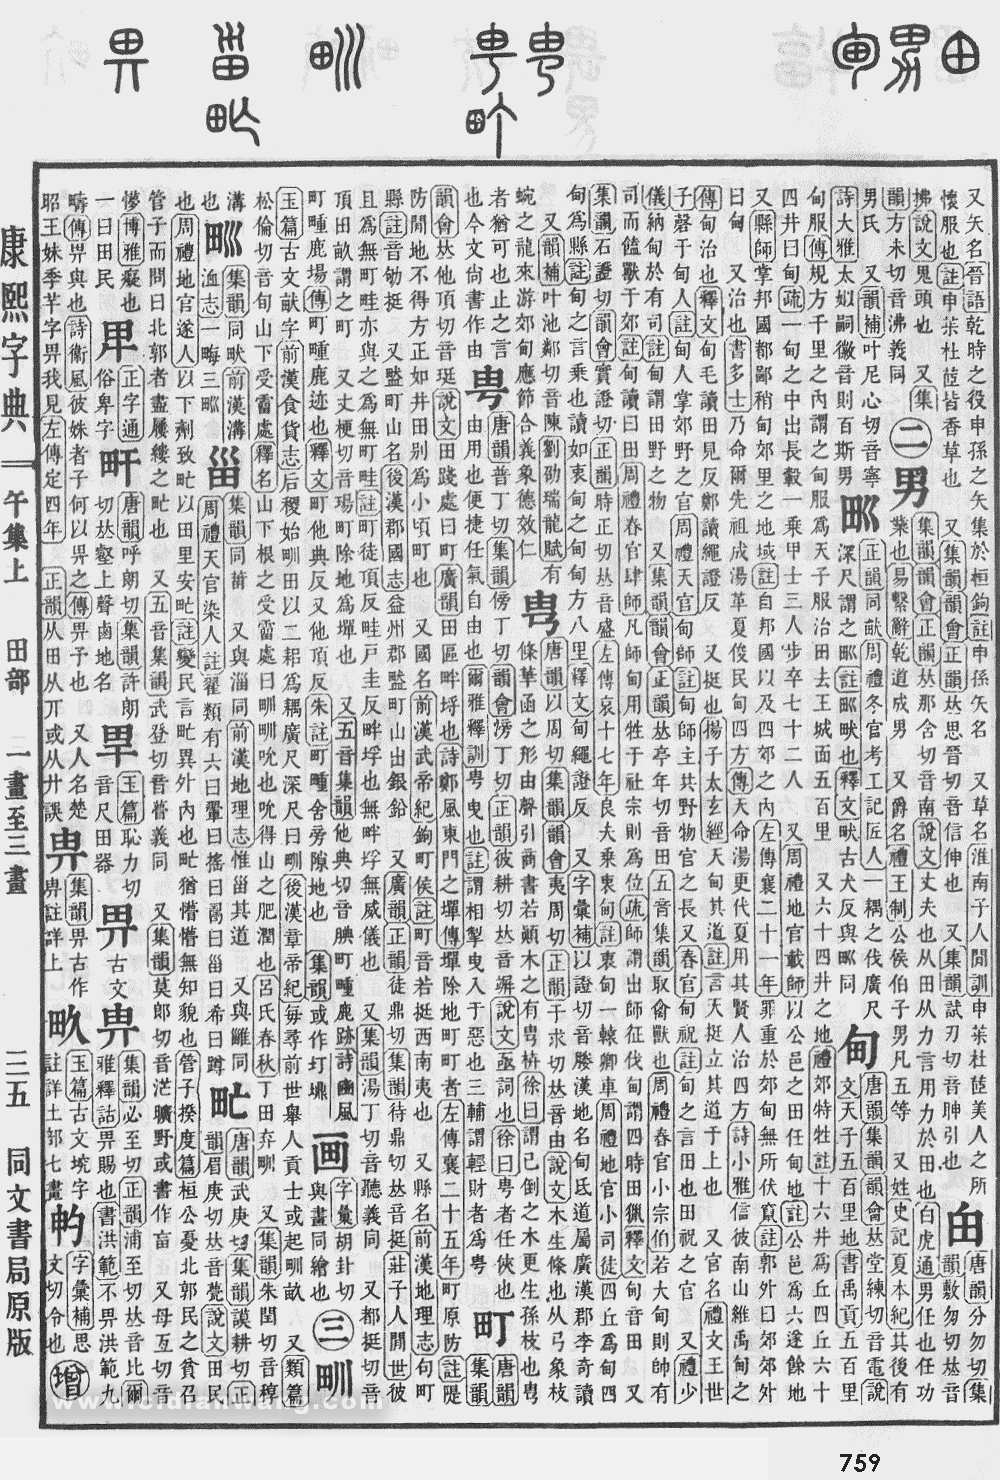 又矢名晉語乾時之役申孫之矢集於桓鉤註申孫矢名　又草名淮南子人閒訓申茱杜茝美人之所
懷服也註申茱杜茝皆香草也　又集韻韻會正韻𠀤思晉切音信伸也　又集韻試刃切音眒引也
甶
唐韻分勿切集
韻敷勿切𠀤音
拂說文鬼頭也　又集
韻方未切音沸義同
二
男
集韻韻會正韻𠀤那含切音南說文丈夫也从田从力言用力於田也白虎通男任也任功
業也易繫辭乾道成男　又爵名禮王制公侯伯子男凡五等　又姓史記夏本紀其後有
男氏　又韻補叶尼心切音寧
詩大雅太姒嗣徽音則百斯男
正韻同畎周禮冬官考工記匠人一耦之伐廣尺
深尺謂之 註 畎也釋文畎古犬反與 同
甸
唐韻集韻韻會𠀤堂練切音電說
文天子五百里地書禹貢五百里
甸服傳規方千里之內謂之甸服爲天子服治田去王城面五百里　又六十四井之地禮郊特牲註十六井爲丘四丘六十
四井曰甸疏一甸之中出長轂一乘甲士三人步卒七十二人　又周禮地官載師以公邑之田任甸地註公邑爲六遂餘地
又縣師掌邦國都鄙稍甸郊里之地域註自邦國以及四郊之內左傳襄二十一年罪重於郊甸無所伏竄註郭外曰郊郊外
曰甸　又治也書多士乃命爾先祖成湯革夏俊民甸四方傳天命湯更代夏用其賢人治四方詩小雅信彼南山維禹甸之
傳甸治也釋文甸毛讀田見反鄭讀繩證反　又挺也揚子太玄經天甸其道註言天挺立其道于上也　又官名禮文王世
子磬于甸人註甸人掌郊野之官周禮天官甸師註甸師主共野物官之長又春官甸祝註甸之言田也田祝之官　又禮少
儀納甸於有司註甸謂田野之物　又集韻韻會正韻𠀤亭年切音田五音集韻取禽獸也周禮春官小宗伯若大甸則帥有
司而饁獸于郊註甸讀曰田周禮春官肆師凡師甸用牲于社宗則爲位疏師謂出師征伐甸謂四時田獵釋文甸音田　又
集韻石證切韻會實證切正韻時正切𠀤音盛左傳哀十七年良夫乘衷甸註衷甸一轅卿車周禮地官小司徒四丘爲甸四
甸爲縣註甸之言乘也讀如衷甸之甸甸方八里釋文甸繩證反　又字彙補以證切音媵漢地名甸氐道屬廣漢郡李奇讀
又韻補叶池鄰切音陳劉劭瑞龍賦有
蜿之龍來游郊甸應節合義象德效仁
㽕
唐韻以周切集韻韻會夷周切正韻于求切𠀤音由說文木生條也从𢎘象枝
條華函之形由聲引商書若顚木之有㽕枿徐曰謂已倒之木更生孫枝也㽕
者猶可也止之言
也今文尚書作由
甹
唐韻普丁切集韻傍丁切韻會滂丁切正韻彼耕切𠀤音竮說文亟詞也徐曰甹者任俠也
由用也便捷任氣自由也爾雅釋訓甹曳也註謂相掣曳入于惡也三輔謂輕財者爲甹
町
唐韻
集韻
韻會𠀤他頂切音珽說文田踐處曰町廣韻田區畔埒也詩鄭風東門之墠傳墠除地町町者左傳襄二十五年町原防註隄
防閒地不得方正如井田别爲小頃町也　又國名前漢武帝紀鉤町侯註町音若挺西南夷也　又縣名前漢地理志句町
縣註音劬挺　又 町山名後漢郡國志益州郡 町山出銀鉛　又廣韻正韻徒鼎切集韻待鼎切𠀤音挺莊子人閒世彼
且爲無町畦亦與之爲無町畦註町徒頂反畦戶圭反畔埒也無畔埒無威儀也　又集韻湯丁切音聽義同　又都挺切音
頂田畝謂之町　又丈梗切音瑒町除地爲墠也　又五音集韻他典切音腆町畽鹿跡詩豳風
町畽鹿場傳町畽鹿迹也釋文町他典反又他頂反朱註町畽舍旁隙地也　集韻或作圢
画
字彙胡卦切
與畫同繪也
三
甽
玉篇古文畎字前漢食貨志后稷始甽田以二耜爲耦廣尺深尺曰甽後漢章帝紀每尋前世舉人貢士或起甽畝　又類篇
松倫切音旬山下受霤處釋名山下根之受霤處曰甽甽吮也吮得山之肥潤也呂氏春秋丁田弃甽　又集韻朱閏切音稕
溝
也
集韻同畎前漢溝
洫志一畮三
甾
集韻同葘　又與淄同前漢地理志惟甾其道　又與鯔同
周禮天官染人註翟類有六曰翬曰搖曰 曰甾曰希曰蹲
甿
唐韻武庚切集韻謨耕切正
韻眉庚切𠀤音甍說文田民
也周禮地官遂人以下劑致甿以田里安甿註變民言甿異外內也甿猶懵懵無知貌也管子揆度篇桓公憂北郭民之貧召
管子而問曰北郭者盡屨縷之甿也　又五音集韻武登切音瞢義同　又集韻莫郎切音茫曠野或書作 　又母亙切音
懜博雅癡也
一曰田民
正字通
俗卑字
唐韻呼朗切集韻許朗
切𠀤壑上聲鹵地名
玉篇恥力切
音尺田器
畀
古文
畁
集韻必至切正韻浦至切𠀤音比爾
雅釋詁畀賜也書洪範不畀洪範九
疇傳畀與也詩衛風彼姝者子何以畀之傳畀予也　又人名楚
昭王妹季羋字畀我見左傳定四年　正韻从田从丌或从廾誤
畁
集韻畀古作
畁註詳上
玉篇古文 字
註詳土部七畫
畃
字彙補思
文切今也
增
康熙字典
午集上
田部
二畫至三畫
三五
同文書局原版
www.cidianwang.com
759